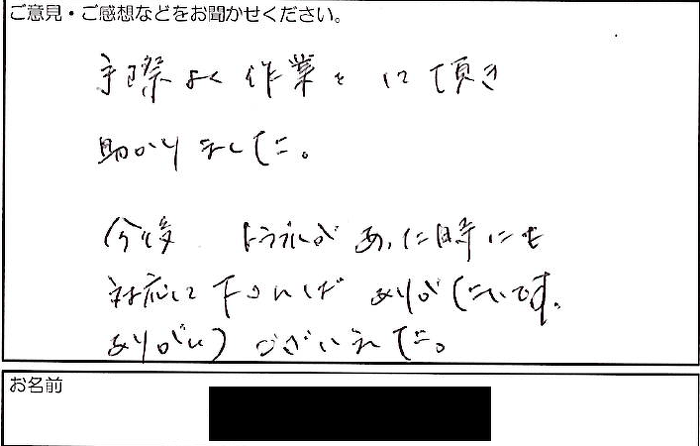 ご意見・ご感想などをお聞かせください。
手際よく作業をして頂き
助かりました。
今後 トラブルがあった時にも
対応して下されば ありがたいです。
ありがとうございました。
お名前